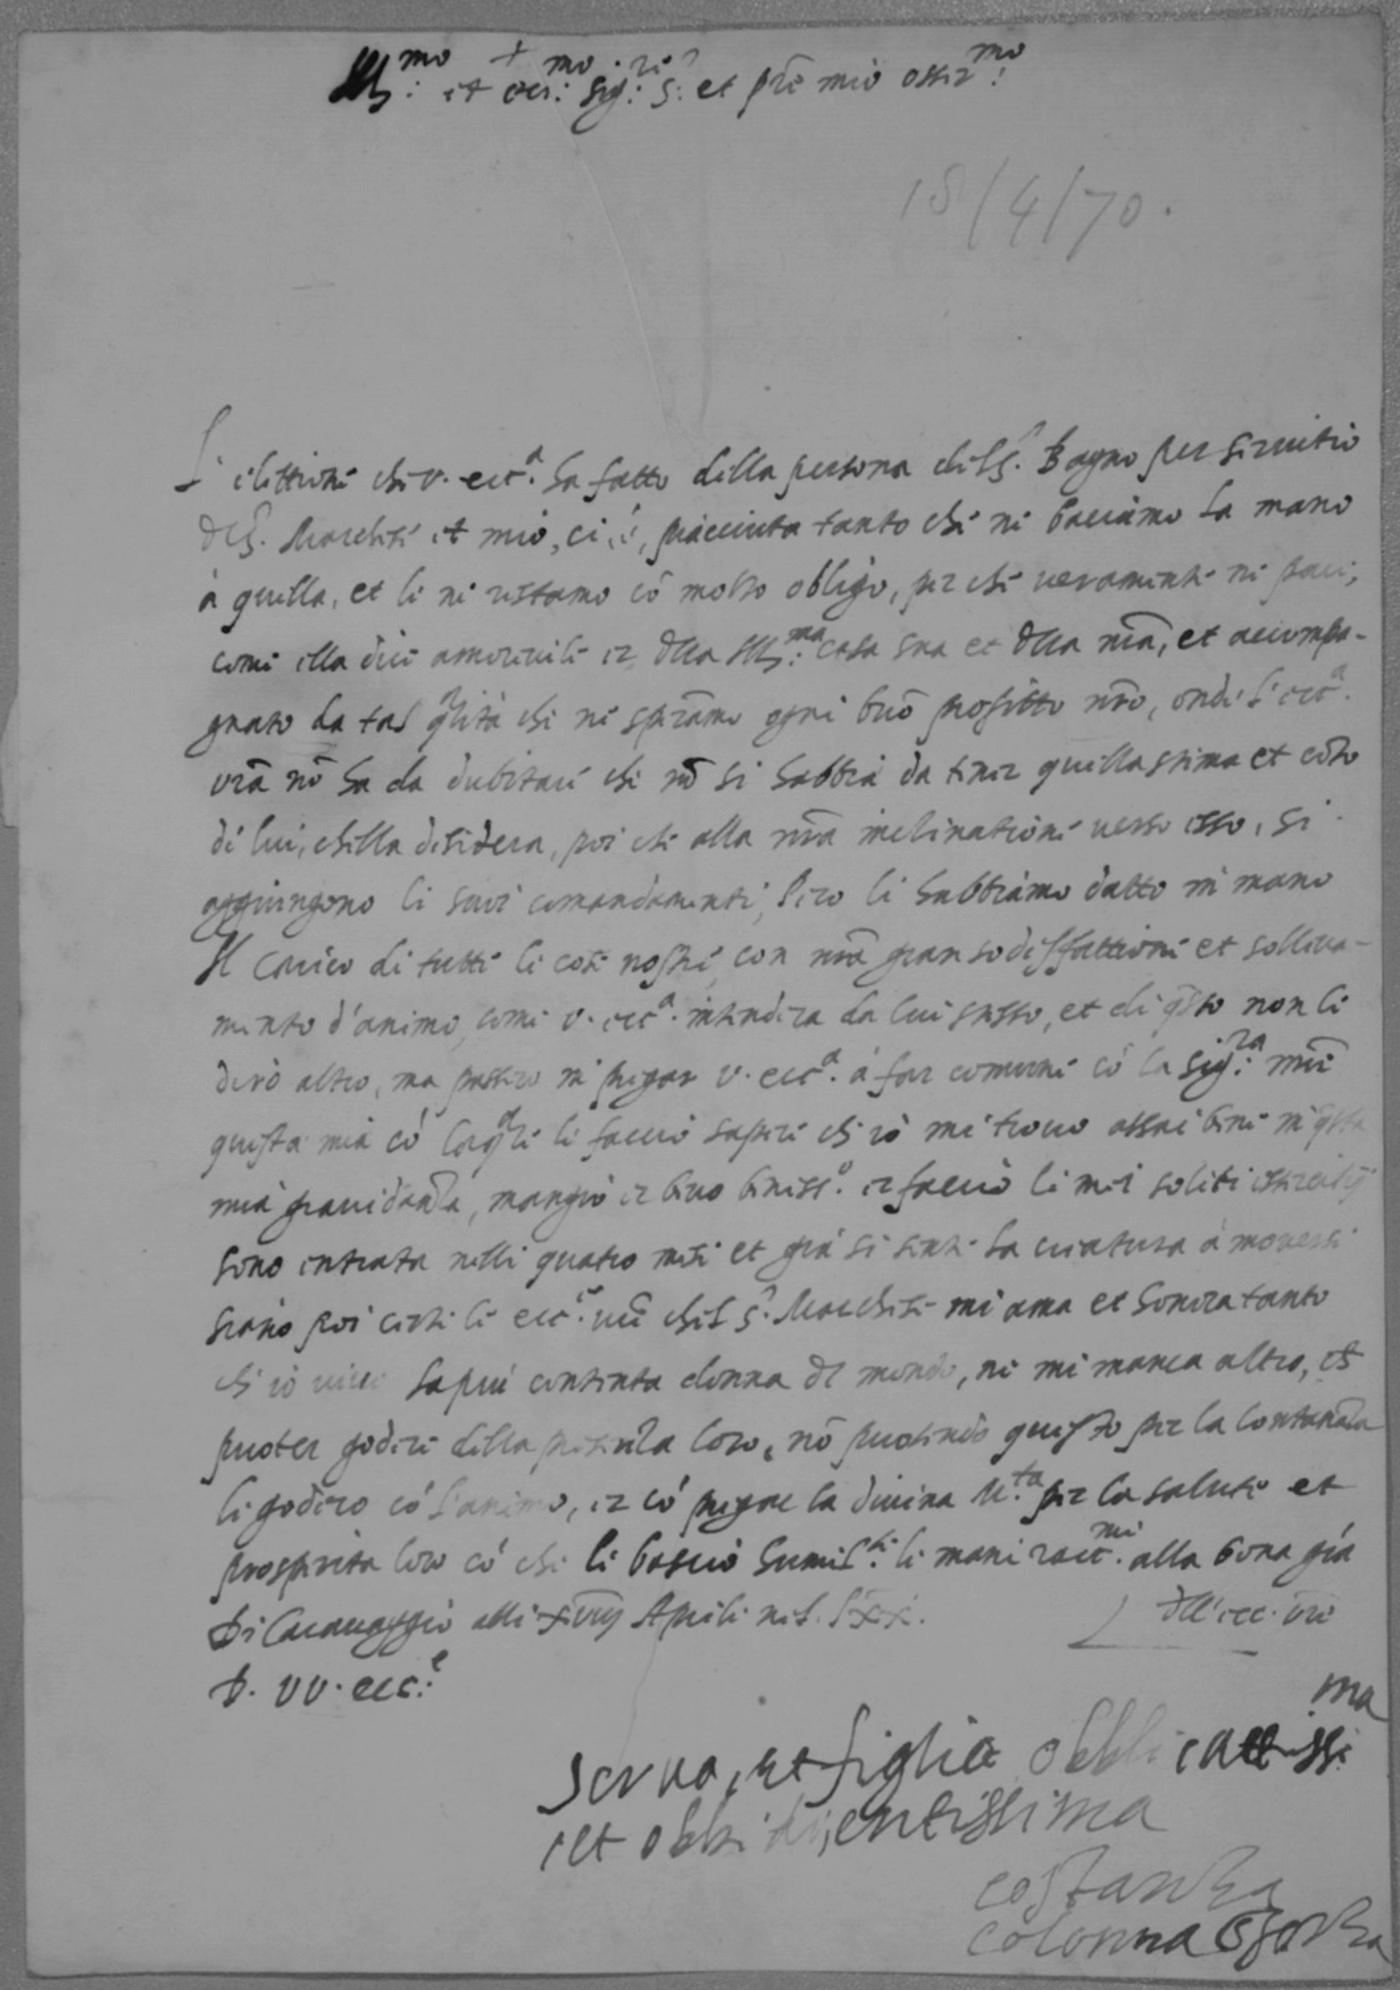 +
Ill:mo et ecc:mo sig:re s: et prē mio osser:mo
18/4/70.
L'elettione che v. ecc.a ha fatto della persona del S.r Bagno per servitio
del S. Marchese et mio, ci è, piacciuta tanto che ne basciamo la mano
à quella, et le ne restamo cō molto obligo, per che veramente ne pare,
come ella dice amorevile et dlla Ill:ma casa sua et dlla nrā, et accompa-
gnato da tal qlità che ne sperāmo ogni buō profitto nrō, onde l'ecc.a
vrā nō ha da dubitare che nō si habbia da tener quella stima et cōto
di lui, ch'ella desidera, poi che alla nrā inclinatione verso esso, si
aggiungono li suoi comandamenti, Pero li habbiamo datto in mano
Il carico di tutte le cose nostre, con nrā gran sodisffattione et solleva-
mento d'animo, come v. ecc.a intenderà da lui stesso, et di qsto non li
dirò altro, ma passero in pregar v. ecc.a à far comune cō la sig:ra mrē
questa mia cō laqle li faccio sapere ch'io mi trovo assai bene in qsta
mia gravidanza, mangio et bevo beniss.o et faccio li miei soliti essercitij
sono entrata nelli quatro mesi et già si sente la creatura à moversi
siano poi certe le ecc.e vrē che'l S.r Marchese mi ama et honora tanto
ch'io vivo la più contenta donna del mondo, ne mi manca altro, che
puoter godere della presenza loro, nō puotendo questo per la lontananza
li godero cō l'animo, et cō pregar la divina M.ta per la salute et
prosperità loro cō che li bascio humil.te le mani racc.mi alla bona grā
Di Caravaggio alli xviij Aprile nel. Lxx. dll'ecc. vrē
D. VV. ecc:e
serva, et figlia obblicattissi:ma
et obbidientissima
costanza
colonna sforza